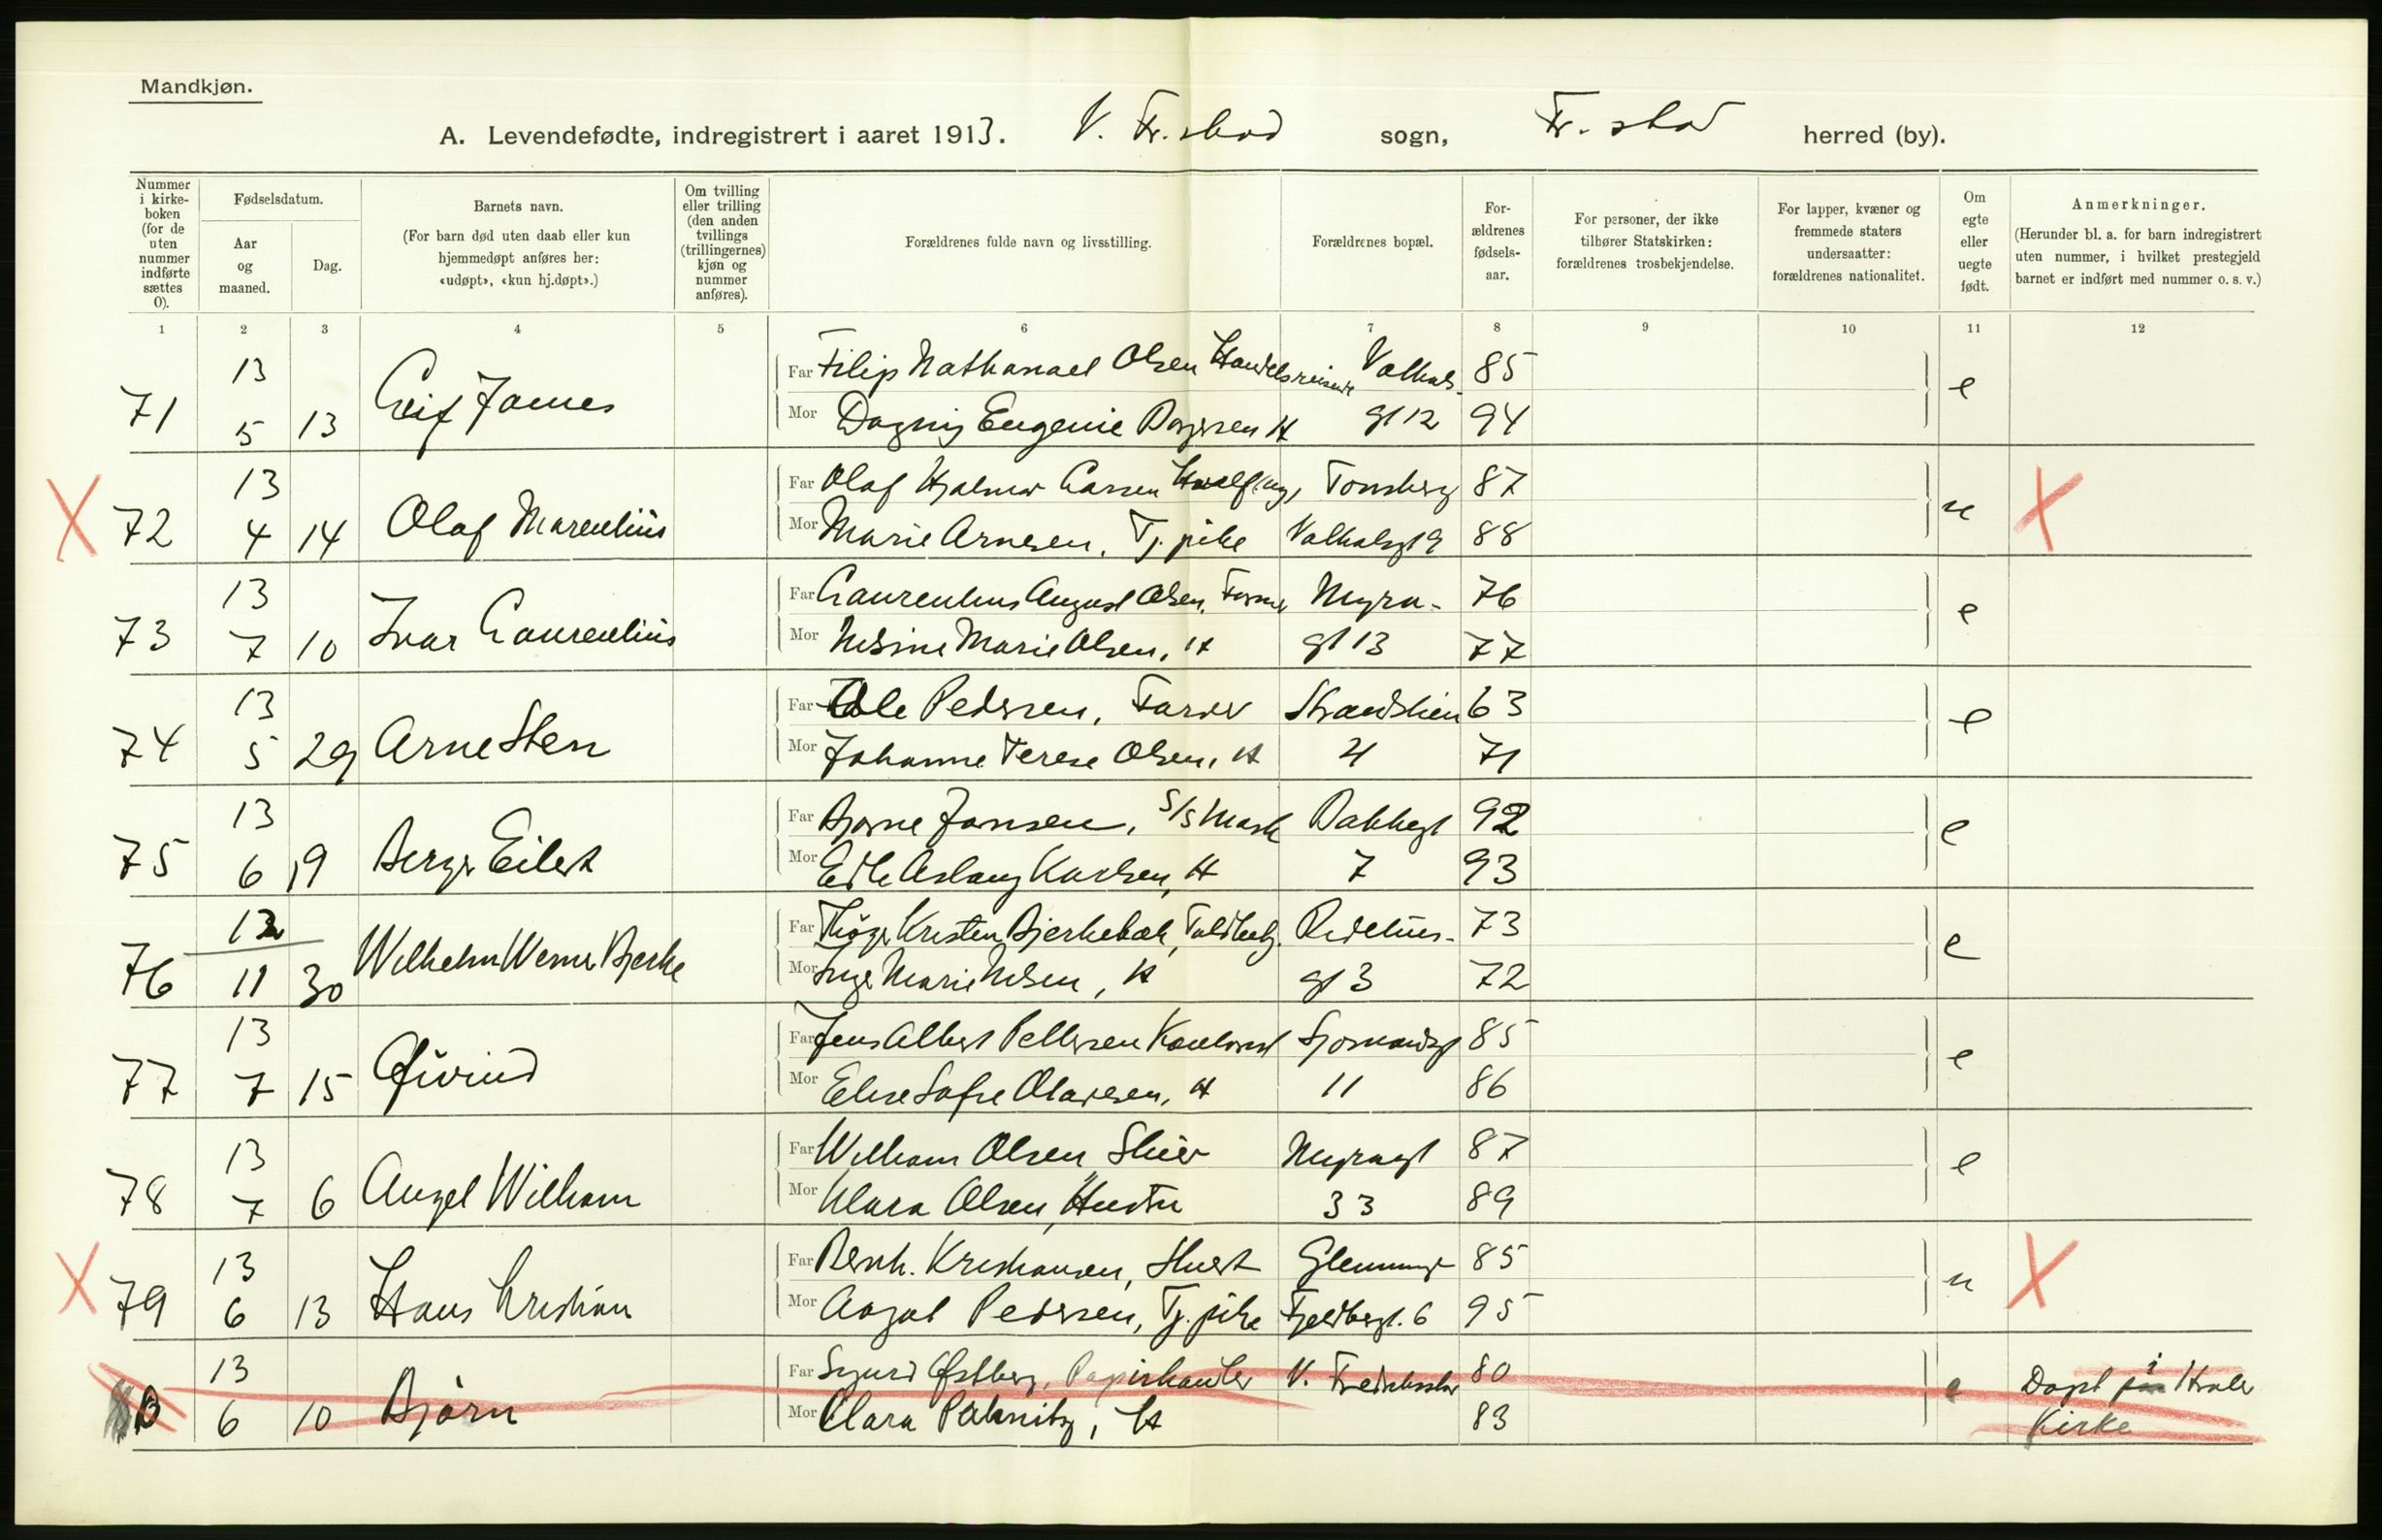 Mandkjøn.
A. Levendefødte, indregistrert i aaret 1913. V. Fr.stad sogn, Fr.stad herred (by).
Nummer i kirkeboken (for de uten nummer indførte sættes 0).
Fødselsdatum.
Aar og maaned.
Dag.
Barnets navn.
(For barn død uten daab eller kun hjemmedøpt anføres her: «udøpt», «kun hj.døpt».)
Om tvilling eller trilling (den anden tvillings (trillingernes) kjøn og nummer anføres).
Forældrenes fulde navn og livsstilling.
Forældrenes bopæl.
Forældrenes fødselsaar.
For personer, der ikke tilhører Statskirken: forældrenes trosbekjendelse.
For lapper, kvæner og fremmede staters undersaatter: forældrenes nationalitet.
Om egte eller uegte født.
Anmerkninger.
(Herunder bl. a. for barn indregistrert uten nummer, i hvilket prestegjeld barnet er indført med nummer o. s. v.)
1 2 3 4 5 6 7 8 9 10 11 12
13 Far Filip Nathanael Olsen Handelsreisende Valhals- 85
71 5 13 Leif James e
Mor Dagny Eugenie H gt 12 94
13 Far Olaf Hjalmar Larsen Tonsberg 87
X 72 4 14 Olaf Marentius u X
Mor Marie Arnesen, Tj.pike Valhalsgt 9 88
13 Far Laurentius August Olsen, Former Myra- 76
73 7 10 Ivar Laurentius e
Mor Nilsine Marie Olsen, H gt 13 77
13 Far Ole Pedersen, Farver 63
74 5 29 Arne Sten e
Mor Johanne Terese Olsen, H 4 71
13 Far Bjarne Jansen, S/S Mask Bakkegt 92
75 6 19 Birger Eilert e
Mor Edle Aslaug Karlsen, H 7 93
12 Far Kristen Bjerkebæk, 73
76 11 30 Wilhelm Werner Bjerke e
Mor Inger Marie Nilsen, H gt 3 72
13 Far Jens Albert Pettersen Kontorist Sjomandsgt 85
77 7 15 Øivind e
Mor Elise Sofie Olavesen, H 11 86
13 Far William Olsen Sliver Myragt 87
78 7 6 Angel William e
Mor Klara Olsen, Hustru 33 89
13 Far Bernh. Kristiansen, Glemminge 85
X 79 6 13 Hans Kristian u X
Mor Aagot Pedersen, Tj.pike Fjeldbergt. 6 95
13 Far Sigurd Østberg, Papirhandler V. Fredrikstad 80
6 10 Bjørn e Døpt i
Mor Clara H 83 Kirke